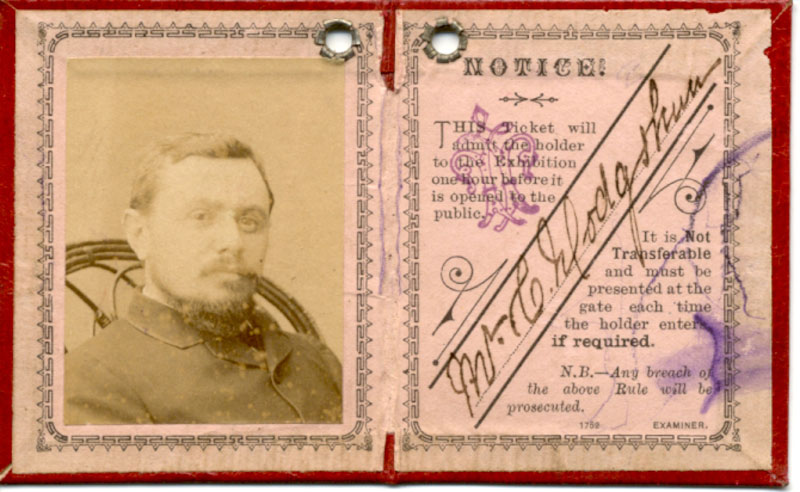 NOTICE.
THIS Ticket will
admit the holder
to the Exhibition
one hour before it
is opened to the
public.
Mr. H. Dodgshun
It is Not
Transferable
and must be
presented at the
gate each time
the holder enters
if required.
N.B.—Any breach of
the above Rule will be
prosecuted.
EXAMINER.